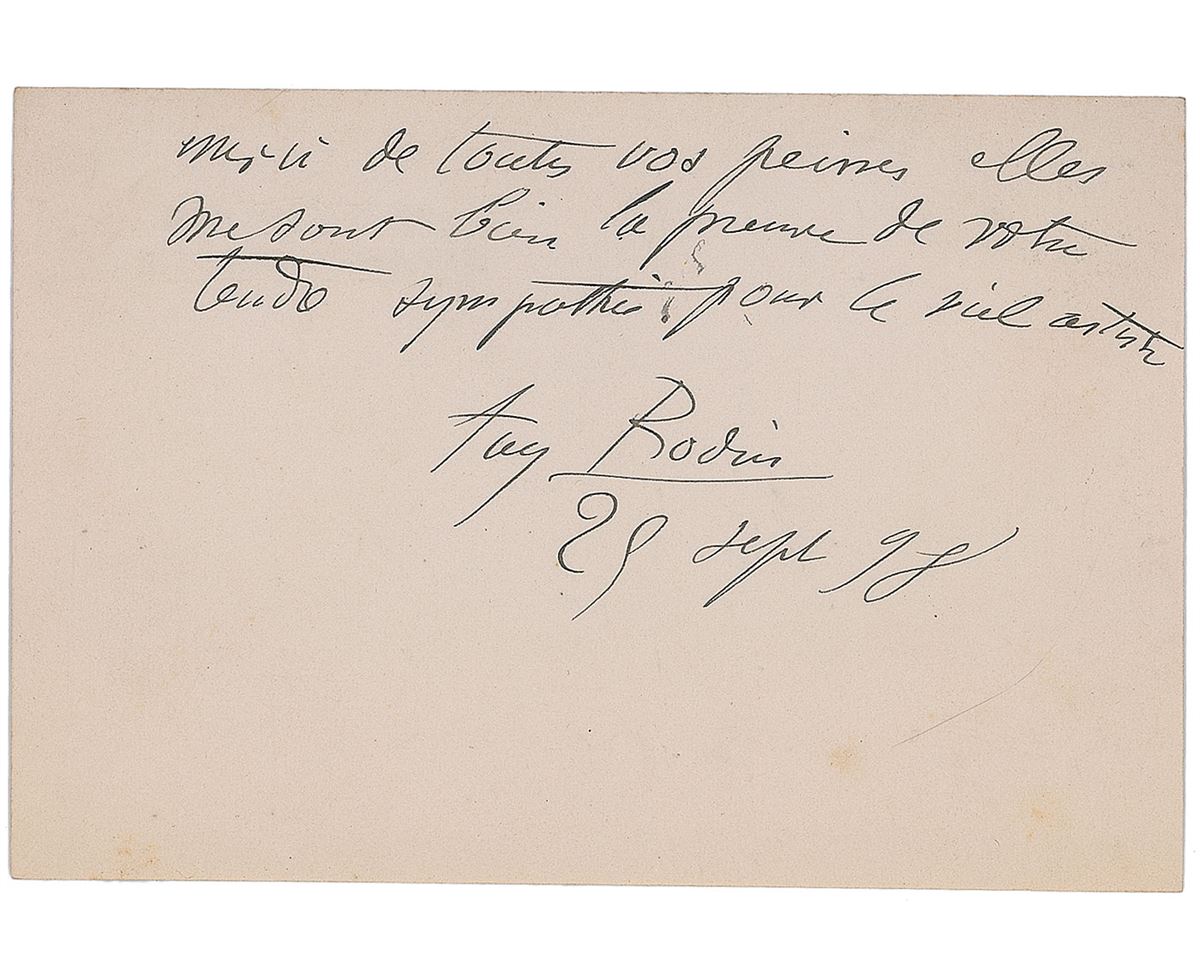 merci de toutes vos peines elles
me sont bien la preuve de votre
tendre sympathie pour le viel artiste
Aug Rodin
29 sept 98